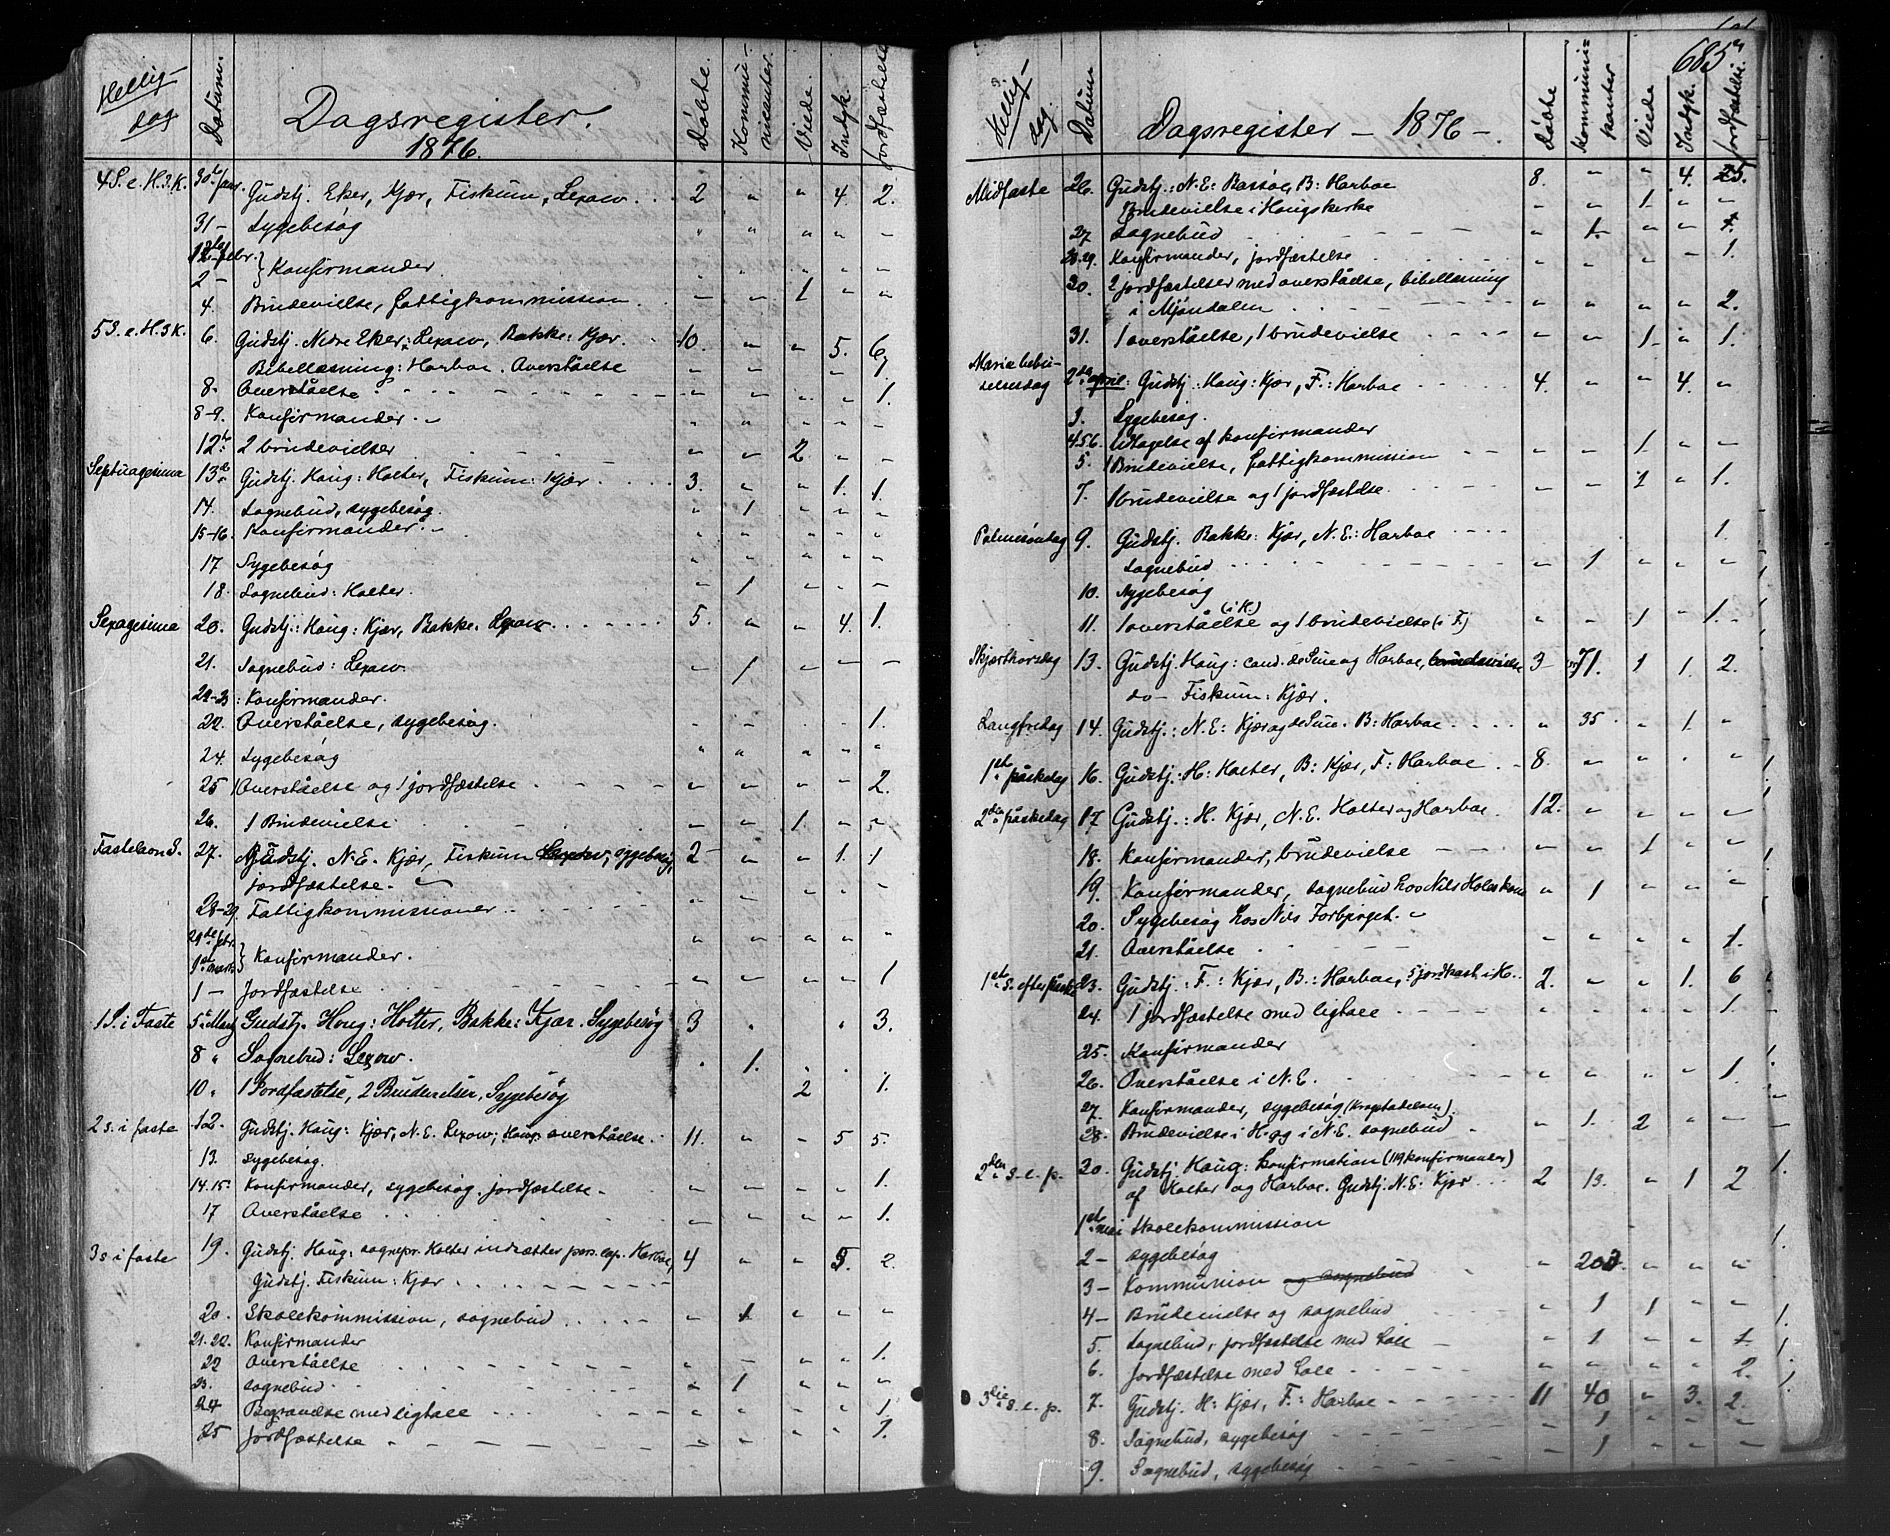 Hellig-
dag
Datum.
Dagsregister.
1876.
Döbte.
Kommu-
nicanter.
Viede.
Indgk.
Jordfæstelse
4 S. e. H.3.K. 30te Janr. Gudstj. Eker, Kjær, Fiskum, Lexow . . . 2 " " 4. 2.
31 - Sygebesøg " " " " -
1ste febr.
2 - } Konfirmander.
4. Brudevielse, fattigkommission . - - 1 " "
5 S. e. H.3K. 6. Gudstj. Nedre Eker: Lexow, Bakke: Kjær. 10. " - 5. 6.
Bibellæsning: Harboe. Overståelse - - - - 1
8. Overståelse - - - - 1.
8-9. Konfirmander
12te 2 brudevielser " - 2 - -
Septuagesima 13de Gudstj. Haug: Holter, Fiskum: Kjær 3. - " 1. 1.
14. Sognebud, sygebesøg. - 1 " - -
15-16. Konfirmander
17 Sygebesøg
18. Sognebud: Holter. - 1 - - -
Sexagesima 20. Gudstj.: Haug: Kjær, Bakke: Lexow . . . 5. " " 4. 1.
21. Sognebud: Lexow - 1 - - -
22-23: Konfirmander.
22. Overståelse, sygebesøg. - - - - 1.
24. Sygebesøg " " " " "
25 1 Overståelse og 1 jordfæstelse - - - - 2.
26. 1 Brudevielse - - 1. -
Fastelavn S. 27. Gudstj. N.E. Kjær, Fiskum Lexow, sygebesøg, 2 - " 1. 1
jordfæstelse.
28-29. Fattigkommissioner
29de febr.
1ste marts } Konfirmander.
1 - Jordfæstelse - - - - 1
1 S. i Faste 5te Marts Gudstj. Haug: Holter, Bakke: Kjær. Sygebesøg 3 . . 3.
8 " Sognebud: Lexow. . 1. . .
10 " 1 Jordfæstelse, 2 Brudevielser, Sygebesøg 2 1.
2 s. i faste 12. Gudstj. Haug: Kjær, N.E. Lexow; Haug: overståelse. 11. " - 5 5.
13. sygebesøg.
14.15. Konfirmander, sygebesøg. jordfæstelse - - - - - 1.
17 Overståelse - - - - 1.
3 s i faste 19. Gudstj. Haug: sognepr. Holter indsætter pers. cap. Harboe, 4 " " 5. 2.
Gudstj. Fiskum: Kjær
20. Skolekommission, sognebud . . . . - 1 - - -
21.22. Konfirmander
22 Overståelse " - " " 1.
23. sognebud " 1 " " -
24 Begravelse med ligtale . . . - - - - 1
25 Jordfæstelse - - - - 1.
685
Hellig-
dag.
Datum
Dagsregister - 1876 -
Döbte
Kommuni-
kanter
Viede
Indgk.
Jordfæstelse.
Midfaste 26. Gudstj.: N.E: Bassøe, B: Harboe 8. " " 4. 25.
Brudevielse i Haugskerke " " 1. " "
27 Sognebud " 1. " "
28.29. Konfirmander, jordfæstelse " - - " 1.
30. 2 jordfæstelser med overståelse, bibellæsning
i Mjøndalen " " " " 2.
31. 1 overståelse, 1 brudevielse - - 1. " 1.
Maria bebu-
delsesdag 2den april: Gudstj.: Haug: Kjær, F.: Harboe 4. " " 4. "
3. Sygebesøg.
4.5.6. Udtagelse af konfirmander
5. 1 Brudevielse, fattigkommission - - 1 - -
7. 1 brudevielse og 1 jordfæstelse 1 " 1.
Palmesöndag 9. Gudstj. Bakke: Kjær, N.E: Harboe 1.
sognebud . . . . - 1 - - -
10. Sygebesøg
11. 1 overståelse (i H.) og 1 brudevielse (i F.) " " 1 - 1.
Skjærthorsdag 13. Gudstj. Haug: cand. de Seue og Harboe, brudevielse 3 - 71. 1 1. 2.
do - Fiskum: Kjær.
Langfredag 14. Gudstj.: N.E: Kjær og de Seue. B: Harboe . . . " 35 1. "
1ste påskedag 16. Gudstj.: H: Holter, B: Kjær, F: Harboe 8. " " . "
2den påskedag 17 Gudstj.: H. Kjær, N.E. Holter og Harboe 12. - " - -
18. Konfirmander, brudevielse - - 1 - -
19. Konfirmander, sognebud hos Nils " 1 - - "
20. Sygebesøg hos Nils
21. Overståelse " " - - 1.
1ste s. efter påske 23. Gudstj.: F.: Kjær, B.: Harboe, 5 jordkast. i H. 2. " " 1. 6
24. 1 jordfæstelse med ligtale 1.
25. Konfirmander
26. Overståelse i N.E. 1.
27. Konfirmander, sygebesøg
28. Brudevielse i H. og i N.E. sognebud " 1. 2 " -
2den s. e. p. 30. Gudstj. Haug: konfirmation (119 konfirmander)
af Holter og Harboe. Gudstj. N.E: Kjær . . . 2 13. " 1 2
1ste mai Skolekommission
2 - sygebesøg
3 - Kommunion og sognebud " 203. " " "
4 - Brudevielse og sognebud " 1 1 - -
5. Sognebud, jordfæstelse med tale - 1 " " 1.
6. Jordfæstelse med tale " " " " 2.
3die s. e. p. 7. Gudstj. H: Kjær, F.: Harboe 11 40 " 3. 2.
8. Sognebud, sygebesøg - 1 - - -
9. Sognebud, sygebesøg - 1 - - -